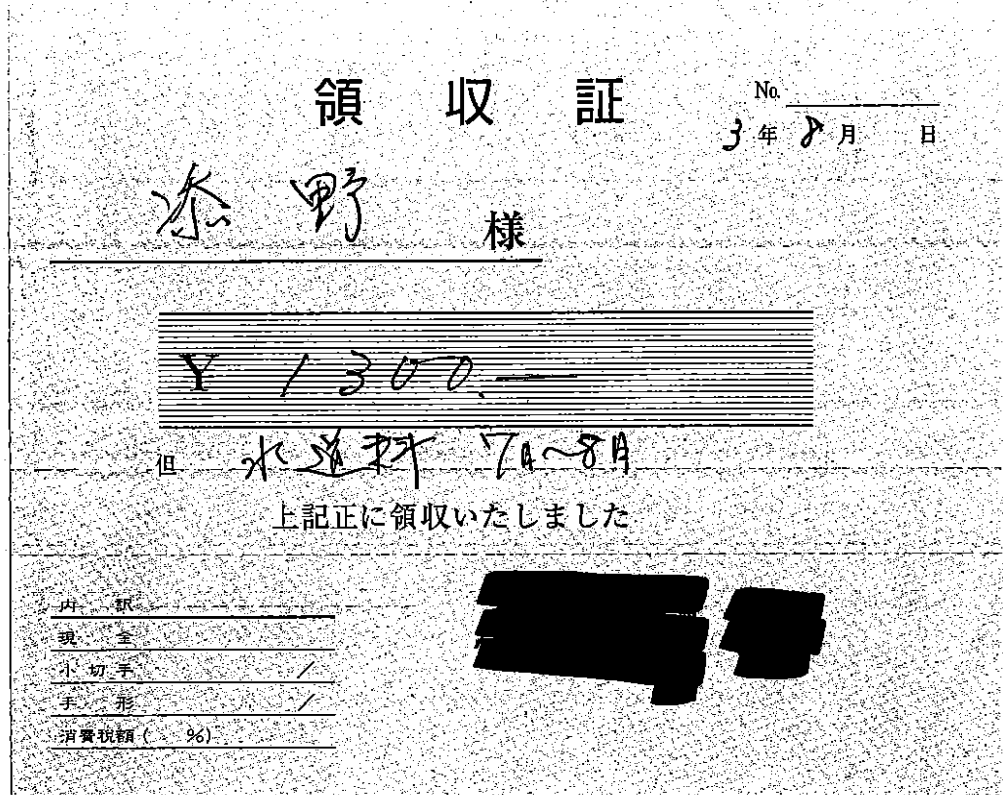 領収証
No.
3年 8月 日
添野 様
¥ 1300.—
但 水道料 7月〜8月
上記正に領収いたしました
内訳
現金
小切手 /
手形 /
消費税額( %)